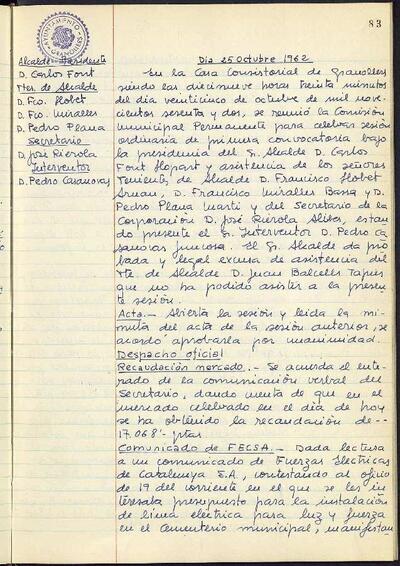 83
AYUNTAMIENTO
GRANOLLERS
Alcalde Presidente
D. Carlos Font
Ttes. de Alcalde
D. Fco. Llobet
D. Fco. Miralles
D. Pedro Plana
Secretario
D. José Rierola
Interventor
D. Pedro Casanovas
Dia 25 Octubre 1962
En la Casa Consistorial de Granollers
siendo las diecinueve horas treinta minutos
del dia veinticinco de octubre de mil nove-
cientos sesenta y dos, se reunió la Comisión
Municipal Permanente para celebrar sesión
ordinaria de primera convocatoria bajo
la presidencia del Sr. Alcalde D. Carlos
Font Llopart y asistencia de los señores
Tenientes de Alcalde D. Francisco Llobet
Arnan, D. Francisco Miralles Bassa y D.
Pedro Plana Marti y del Secretario de la
Corporación D. José Rierola Alibes, estan-
do presente el Sr. Interventor D. Pedro Ca-
sanovas. El Sr. Alcalde da pro-
bada y legal excusa de asistencia del
Tte. de Alcalde D. Juan Balcells
que no ha podido asistir a la presen-
te sesión.
Acta.- Abierta la sesión y leida la mi-
nuta del acta de la sesión anterior, se
acordó aprobarla por unanimidad.
Despacho oficial
Recaudación mercado.- Se acuerda el ente-
rado de la comunicación verbal del
Secretario, dando cuenta de que en el
mercado celebrado en el dia de hoy
se ha obtenido la recaudación de--
17.068'- ptas.
Comunicado de FECSA.- Dada lectura
a un comunicado de Fuerzas Electricas
de Catalunya S.A., contestando al oficio
de 19 del corriente en el que se les in-
teresaba presupuesto para la instalación
de linea electrica para luz y fuerza
en el Cementerio municipal, manifestan